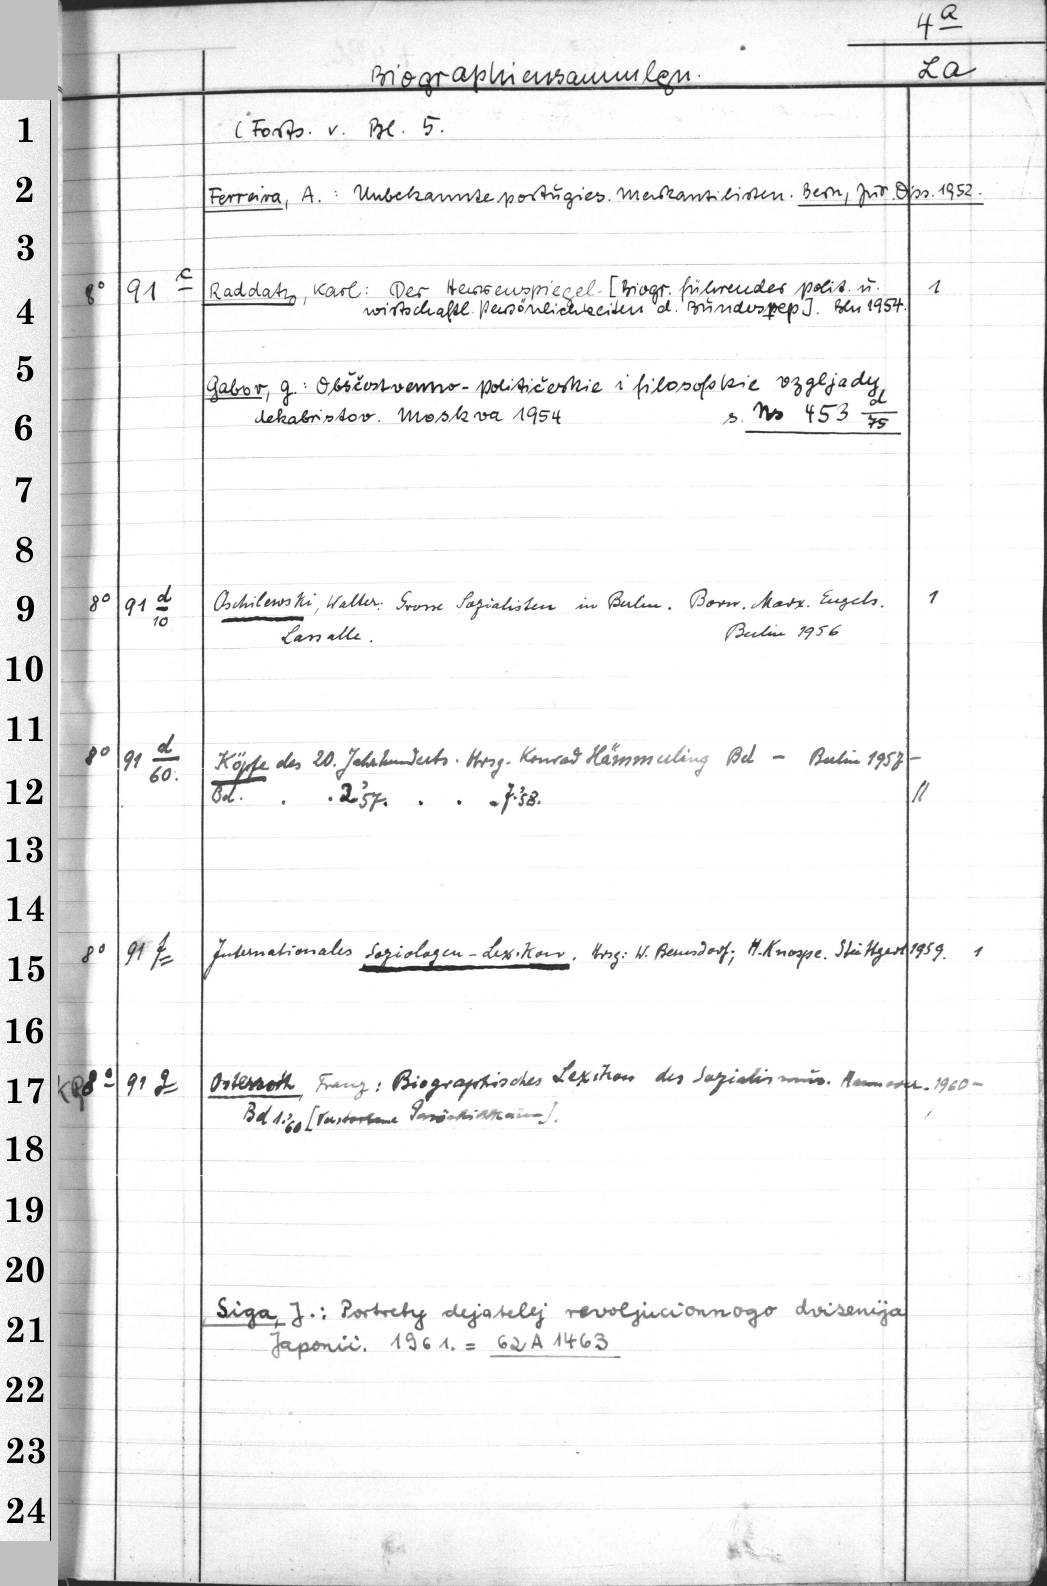 4 a
Biographiensammlgn. La
1 (Forts. v. Bl. 5.
2 Ferreira, A. : Unbekannte portugies. Merkantilisten. Bern, jur. Diss. 1952.
3
8° 91 c Raddatz, Karl: Der Herrenspiegel. [Biogr. führender polit. u. 1
4 wirtschaftl. Persönlichkeiten d. Bundesrep]. Bln 1954.
5 Gabov, G.: Obščestvenno-političeskie i filosofskie vzgljady
6 dekabristov. Moskva 1954 s. No 453 d/75
7
8
9 8° 91 d/10 Oschilewski, Walter: Grosse Sozialisten in Berlin. Born. Marx. Engels. 1
Lassalle. Berlin 1956
10
11 8° 91 d/60. Köpfe des 20. Jahrhunderts. Hrsg. Konrad Hämmerling Bd – Berlin 1957–
12 Bd. . . 2'57. . . . 7.'58. //
13
14
15 8° 91 f Internationales Soziologen-Lexikon. Hrsg: W. Bernsdorf; H. Knospe. Stuttgart 1959. 1
16
17 8° 91 g Osterroth, Franz: Biographisches Lexikon des Sozialismus. Hannover. 1960–
Bd 1.'60 [Verstorbene Persönlichkeiten].
18
19
20
21 Siga, J.: Portrety dejatelej revoljucionnogo dviženija
Japonii. 1961. = 62 A 1463
22
23
24